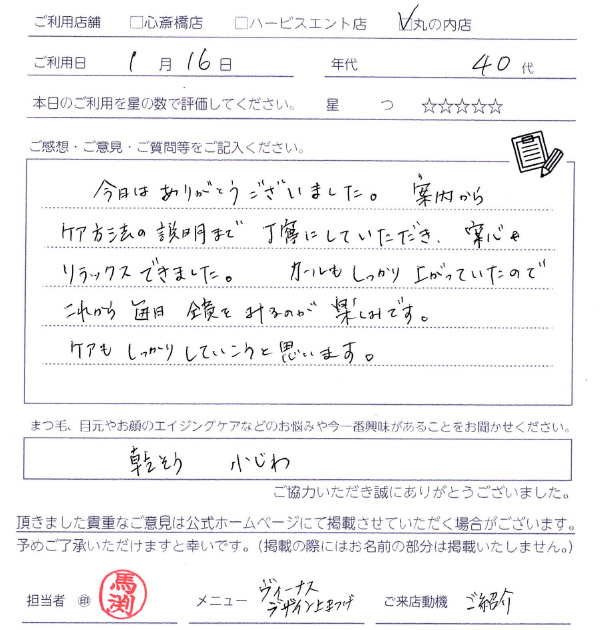 ご利用店舗 □心斎橋店 □ハービスエント店 ☑丸の内店
ご利用日 1月16日 年代 40代
本日のご利用を星の数で評価してください。 星 つ ☆☆☆☆☆
ご感想・ご意見・ご質問等をご記入ください。
今日はありがとうございました。 案内から
ケア方法の説明まで 丁寧にしていただき、安心&
リラックスできました。 カールもしっかり上がっていたので
これから毎日 鏡をみるのが楽しみです。
ケアもしっかりしていこうと思います。
まつ毛、目元やお顔のエイジングケアなどのお悩みや今一番興味があることをお聞かせください。
乾そう 小じわ
ご協力いただき誠にありがとうございました。
頂きました貴重なご意見は公式ホームページにて掲載させていただく場合がございます。
予めご了承いただけますと幸いです。(掲載の際にはお名前の部分は掲載いたしません。)
担当者 ㊞ 馬渕 メニュー ヴィーナスデザイン上まつげ ご来店動機 ご紹介